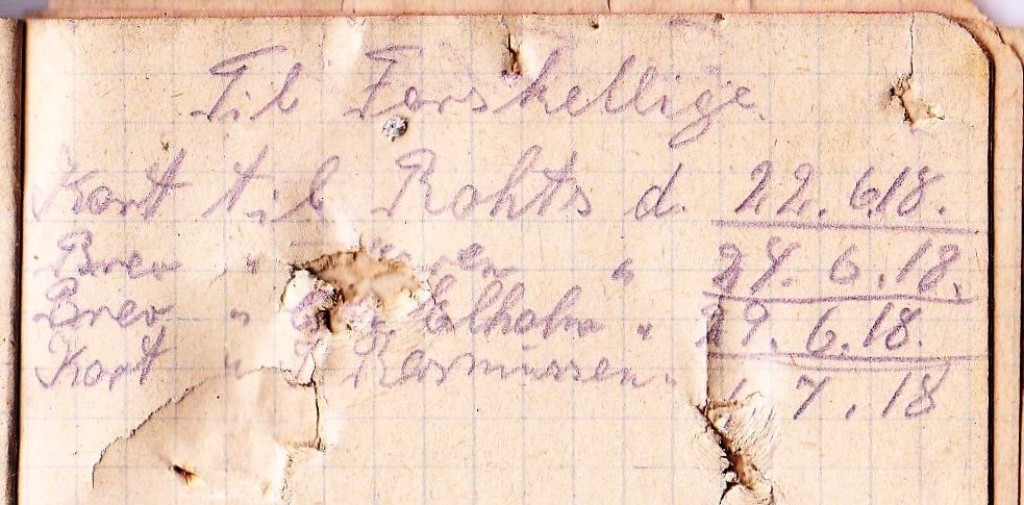 Til Forskellige
Kort til Rohts d. 22. 6.18.
Brev " " 24. 6.18.
Brev " Elholm " 29. 6.18.
Kort " Rasmussen " 1. 7.18